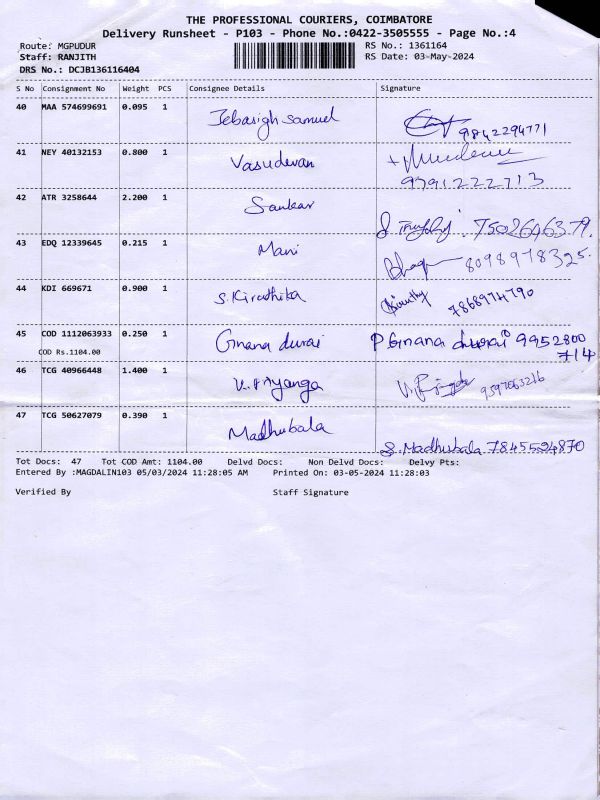 THE PROFESSIONAL COURIERS, COIMBATORE
Delivery Runsheet - P103 - Phone No.:0422-3505555 - Page No.:4
Route: MGPUDUR RS No.: 1361164
Staff: RANJITH RS Date: 03-May-2024
DRS No.: DCJB136116404
S No Consignment No Weight PCS Consignee Details Signature
40 MAA 574699691 0.095 1 Jebasigh Samuel 9842294771
41 NEY 40132153 0.800 1 Vasudevan
9791222713
42 ATR 3258644 2.200 1 Sankar
7502646379.
43 EDQ 12339645 0.215 1 Mani 8098978325.
44 KDI 669671 0.900 1 S. Kiruthika 7868974790
45 COD 1112063933 0.250 1 Gnana durai P Gnana durai 9952800
714
COD Rs.1104.00
46 TCG 40966448 1.400 1
47 TCG 50627079 0.390 1 Madhubala
S. Madhubala 7845594870
Tot Docs: 47 Tot COD Amt: 1104.00 Delvd Docs: Non Delvd Docs: Delvy Pts:
Entered By :MAGDALIN103 05/03/2024 11:28:05 AM Printed On: 03-05-2024 11:28:03
Verified By Staff Signature